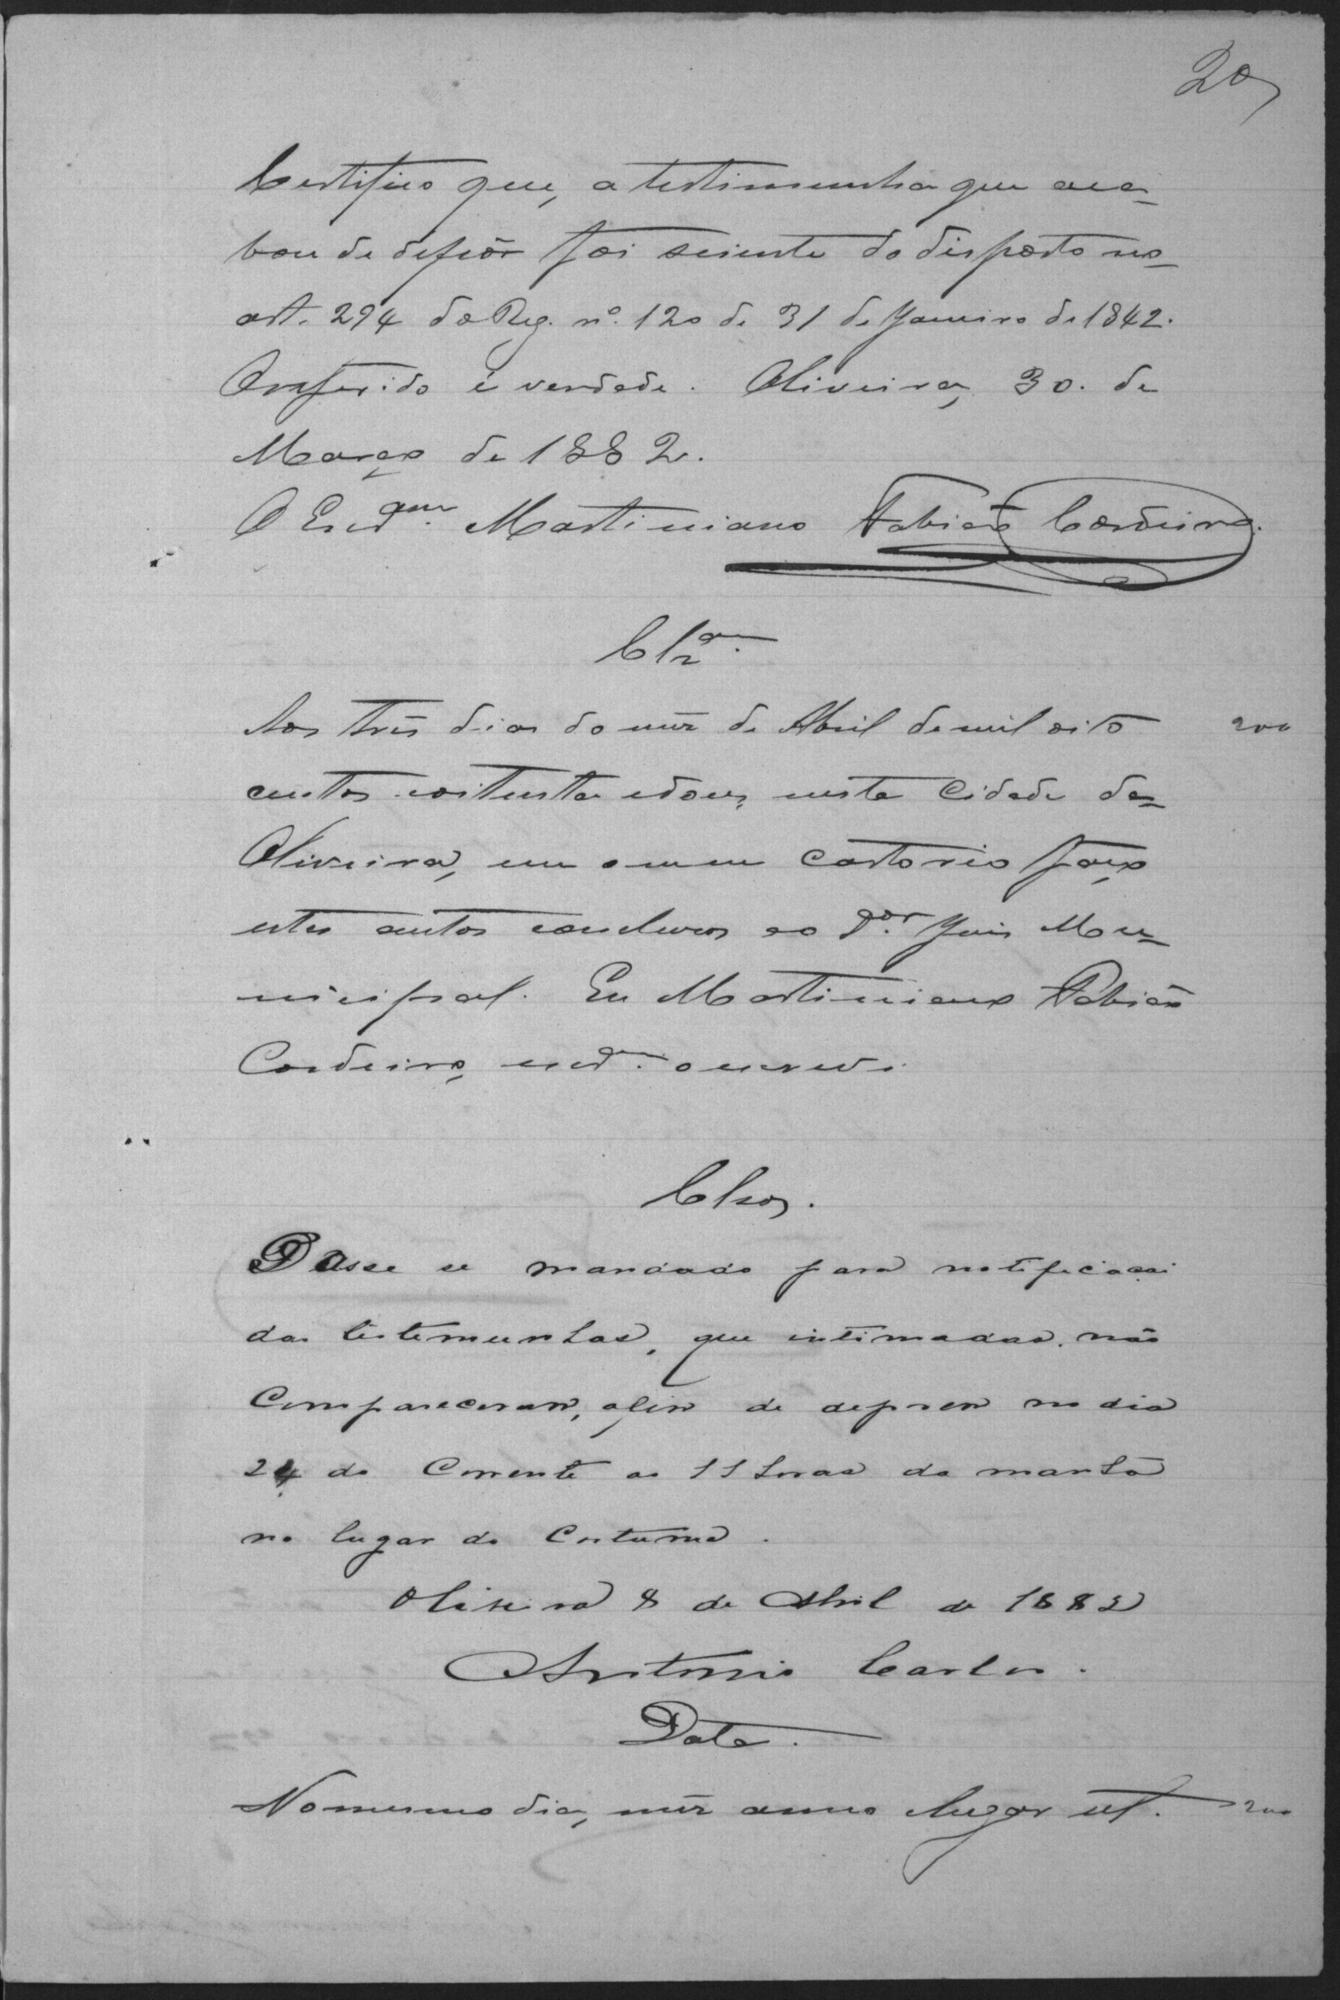 20
Certifico que, a testimunha que aca-
bou de depôr foi sciente do disposto no
art. 294 do Reg. nº. 120 de 31 de Janeiro de 1842.
O referido é verdade. Oliveira, 30. de
Março de 1882.
O Escr.am Martiniano Fabião Cordeiro.
Clz.am
Aos três dias do mêz de Abril de mil oito 200
centos e oitenta e dous, nesta Cidade da
Oliveira, em o meu cartorio faço
estes autos conclusos ao D.or Juis Mu-
nicipal. Eu Martiniano Fabião
Cordeiro, escr.am o escrevi.
Clsos.
Passe se mandado para notificação
das testemunhas, que intimadas não
compareceram, afim de deporem no dia
24 do Corrente as 11 horas da manhã
no lugar do Costume.
Oliveira 8 de Abril de 1882
Antonio Carlos.
Data.
No mesmo dia, mêz anno e lugar ut. 200